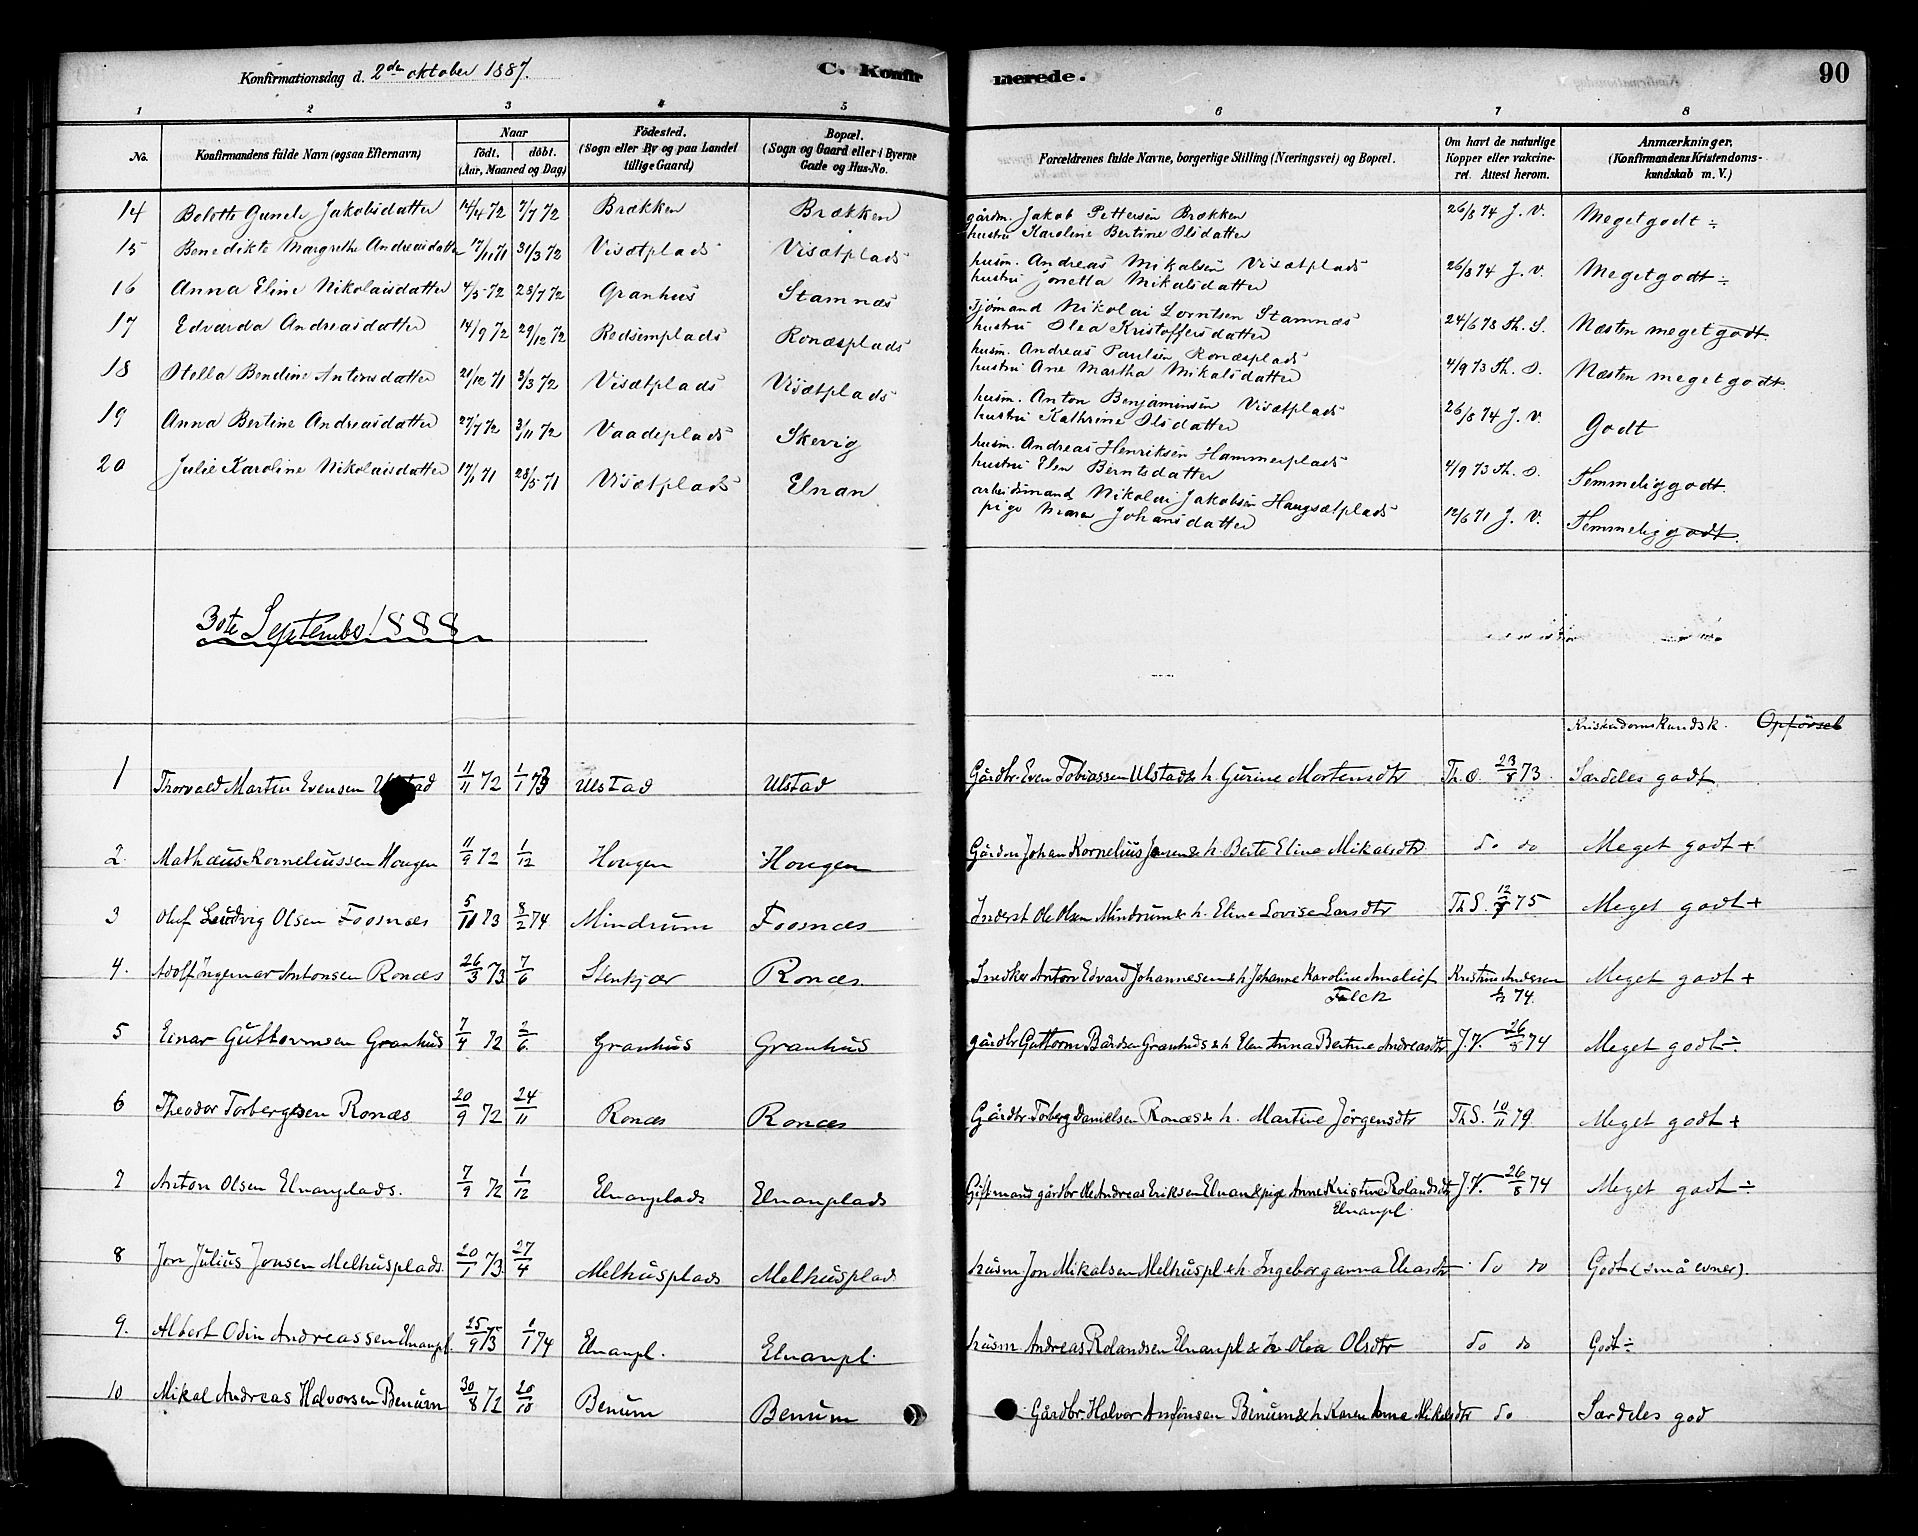 Konfirmationsdag d. 2den oktober 1887. C. Konfirmerede. 90
1 2 3 4 5 6 7 8
No. Konfirmandens fulde Navn (ogsaa Efternavn) Naar født, døbt. (Aar, Maaned og Dag) Fødested. (Sogn eller By og paa Landet tillige Gaard) Bopæl. (Sogn og Gaard eller i Byerne Gade og Hus-No. Forældrenes fulde Navne, borgerlige Stilling (Næringsvei) og Bopæl. Om havt de naturlige Kopper eller vakcineret. Attest herom. Anmærkninger, (Konfirmandens Kristendomskundskab m. V.)
14 Bolette Jakobsdatter 14/4 72 7/7 72 Brækken Brækken gårdm. Jakob Pettersen Brækken hustru Karoline Bertine Olsdatter 26/8 74 J. V. Meget godt ÷
15 Benedikte Margrethe Andreasdatter 17/11 71 31/3 72 Visætplads Visætplads husm. Andreas Mikalsen Visætplads hustru Jonetta Mikalsdatter 26/8 74 J. V. Meget godt ÷
16 Anna Eline Nikolaisdatter 4/5 72 28/7 72 Granhus Stamnæs Nikolai Lorntsen Stamnæs hustru Olea Kristoffersdatter 24/6 78 Th. S. Næsten meget godt.
17 Edvarda Andreasdatter 14/9 72 29/12 72 Rødsemplads Ronæsplads husm. Andreas Paulsen Ronæsplads hustru Ane Martha Mikalsdatter 4/9 73 Th. O. Næsten meget godt.
18 Otella Bendine Antonsdatter 21/12 71 3/3 72 Visætplads Visætplads husm. Anton Benjaminsen Visætplads hustru Kathrine Olsdatter 26/8 74 J. V. Godt
19 Anna Bertine Andreasdatter 27/7 72 3/11 72 Vaadeplads Skevig husm. Andreas Henriksen Hammerplads hustru Elen Berntsdatter 4/9 73 Th. O. Temmelig godt.
20 Julie Karoline Nikolaisdatter 17/1 71 28/5 71 Visætplads Elnan arbeidsmand Nikolai Jakobsen Haugsætplads pige Maren Johansdatter 12/6 71 J. V. Temmelig godt.
30te September 1888
Kristendomskundsk. Opførsel
1 Thorvald Martin Evensen Ulstad 11/11 72 1/1 73 Ulstad Ulstad Gårdbr. Even Tobiassen Ulstad & h. Gurine Mortensdtr Th. O. 23/8 73. Særdeles godt
2. Mathæus Korneliussen Hougen 11/9 72 1/12 Hougen Hougen Johan Kornelius Jensen & h. Berte Eline Mikalsdtr. do do Meget godt +
3 Oluf Ludvig Olsen Foosnæs 5/11 73 8/2 74 Mindrum Foosnæs Inderst Ole Olsen Mindrum & h. Eline Lovise Larsdtr Th S. 12/9 75 Meget godt +
4. Adolf Ingemar Antonsen Ronæs 26/3 73 7/6 Stenkjær Ronæs Snedker Anton Edvard Johannesen & h. Johanne Karoline Amalie f Falck Kristine Andersen 74. Meget godt +
5 Einar Guttormsen Granhus 7/4 72 2/6. Granhus Granhus gårdbr Guttorm Bårdsen Granhus & h Elen Anna Bertine Andreasdtr J. V. 26/8 74 Meget godt ÷
6 Theodor Torbergsen Ronæs 20/9 72 24/11 Ronæs Ronæs Gårdbr Torberg Danielsen Ronæs & h. Martine Jørgensdtr Th S. 10/11 79. Meget godt +
7 Anton Olsen Elnanplads. 7/9 72 1/12 Elnanplads Elnanplads Gift mand gårdbr Ole Andreas Eriksen Elnan & pige Anne Kristine Rolandsdtr Elnanpl. J. V. 26/8 74 Meget godt ÷
8 Jon Julius Jonsen Melhusplads. 20/1 73 27/4 Melhusplads Melhusplad husm Jon Mikalsen Melhuspl & h. Ingeborganna Eliasdtr do do Godt (små evner).
9. Albert Odin Andreassen Elnanpl. 25/9 73 1/1 74 Elnanpl. Elnanpl. husm Andreas Rolandsen Elnanpl & h Olea Olsdtr do do Godt ÷
10 Mikal Andreas Halvorsen Benum 30/8 72 20/10 Benum Benum Gårdbr Halvor Antonsen Benum & h Karen Anna Mikalsdtr do Særdeles god